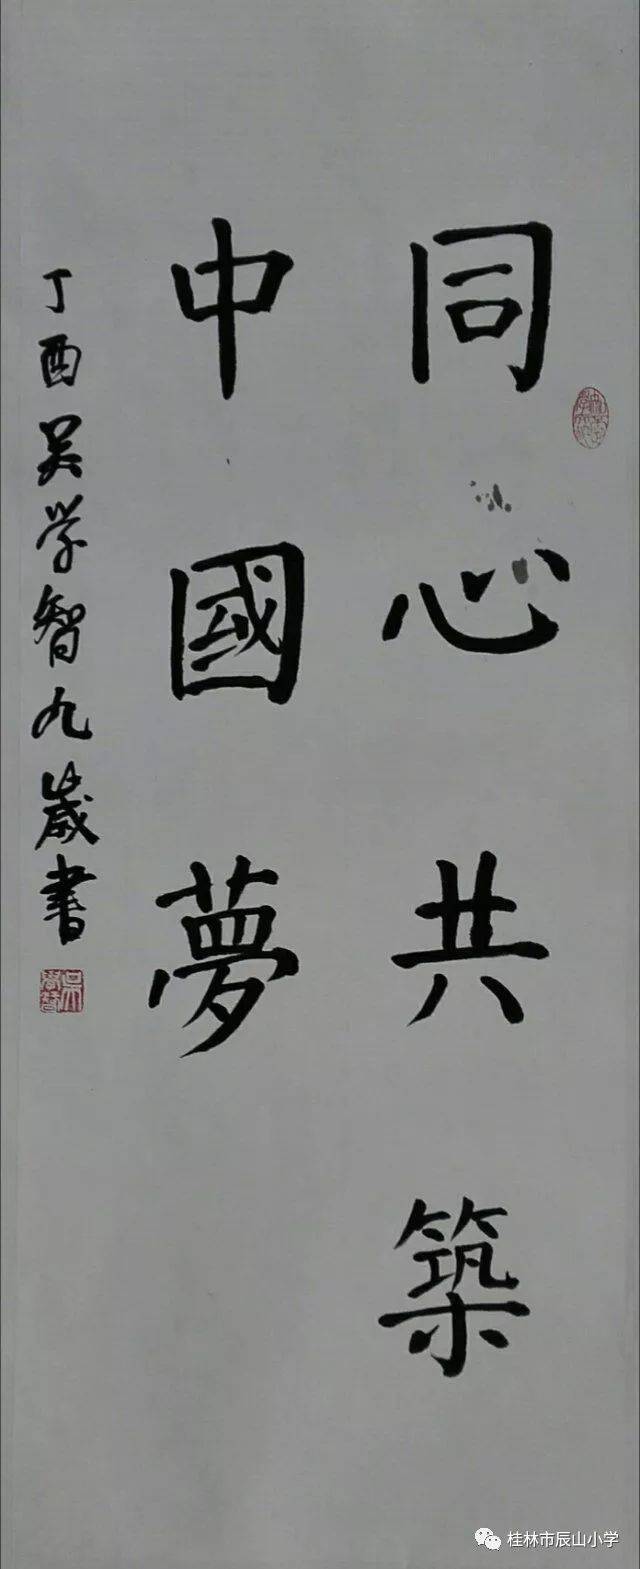 同心共築
中國夢
丁酉吴学智九歲書
桂林市辰山小学